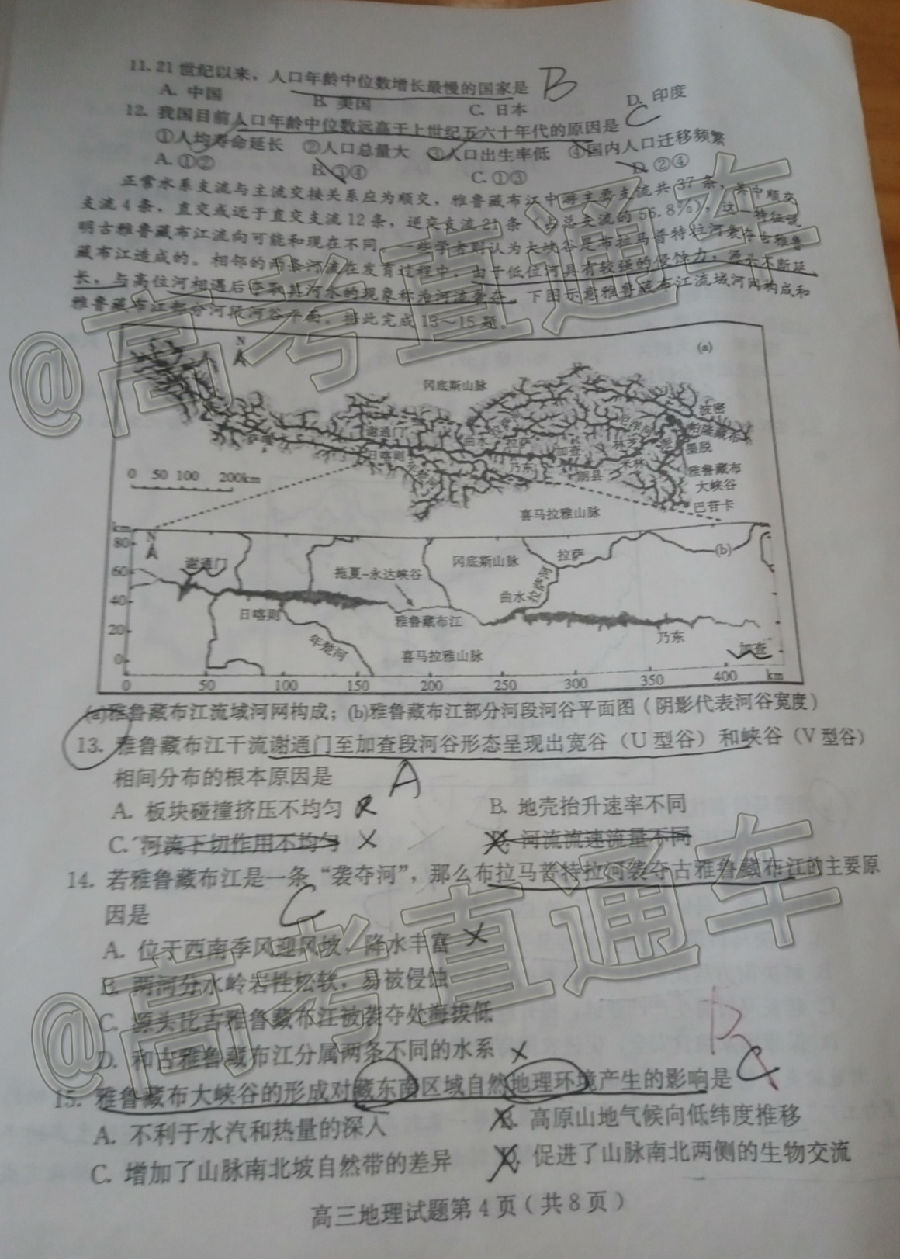 11. 21世纪以来，人口年龄中位数增长最慢的国家是 B
A. 中国 B. 美国 C. 日本 D. 印度
12. 我国目前人口年龄中位数远高于上世纪五六十年代的原因是 C
①人均寿命延长 ②人口总量大 ③人口出生率低 ④国内人口迁移频繁
A. ①② B. ③④ C. ①③ D. ②④
正常水系支流与主流交接关系应为顺交，雅鲁藏布江中游主要支流共37条，其中顺交
支流4条，直交或近于直交支流12条，逆交支流21条（占总支流的56.8%），这一特征说
明古雅鲁藏布江流向可能和现在不同。一些学者则认为大峡谷是布拉马普特拉河袭夺古雅鲁
藏布江造成的。相邻的两条河流在发育过程中，由于低位河具有较强的侵蚀力，源头不断延
长，与高位河相遇后夺取其河水的现象称为河流袭夺。下图示意雅鲁藏布江流域河网构成和
雅鲁藏布江部分河段河谷平面。据此完成13～15题。
@高考直通车
N
(a)
冈底斯山脉
波密
谢通门
曲水 拉萨
林芝
墨脱
日喀则
乃东
加查
朗县
米林
雅鲁藏布
大峡谷
0 50 100 200km
巴昔卡
喜马拉雅山脉
km
80
60
40
20
0
N
(b)
谢通门
拖夏-永达峡谷
冈底斯山脉
拉萨
拉萨河
曲水
日喀则
年楚河
雅鲁藏布江
乃东
加查
喜马拉雅山脉
0 50 100 150 200 250 300 350 400 km
(a)雅鲁藏布江流域河网构成；(b)雅鲁藏布江部分河段河谷平面图（阴影代表河谷宽度）
13. 雅鲁藏布江干流谢通门至加查段河谷形态呈现出宽谷（U型谷）和峡谷（V型谷）
相间分布的根本原因是 A
A. 板块碰撞挤压不均匀 B. 地壳抬升速率不同
C. 河流下切作用不均匀 D. 河流流速流量不同
14. 若雅鲁藏布江是一条“袭夺河”，那么布拉马普特拉河袭夺古雅鲁藏布江的主要原
因是 C
A. 位于西南季风迎风坡，降水丰富
B. 两河分水岭岩性松软，易被侵蚀
C. 源头比古雅鲁藏布江被袭夺处海拔低
D. 和古雅鲁藏布江分属两条不同的水系
@高考直通车
B
15. 雅鲁藏布大峡谷的形成对藏东南区域自然地理环境产生的影响是 C
A. 不利于水汽和热量的深入 B. 高原山地气候向低纬度推移
C. 增加了山脉南北坡自然带的差异 D. 促进了山脉南北两侧的生物交流
高三地理试题第4页（共8页）